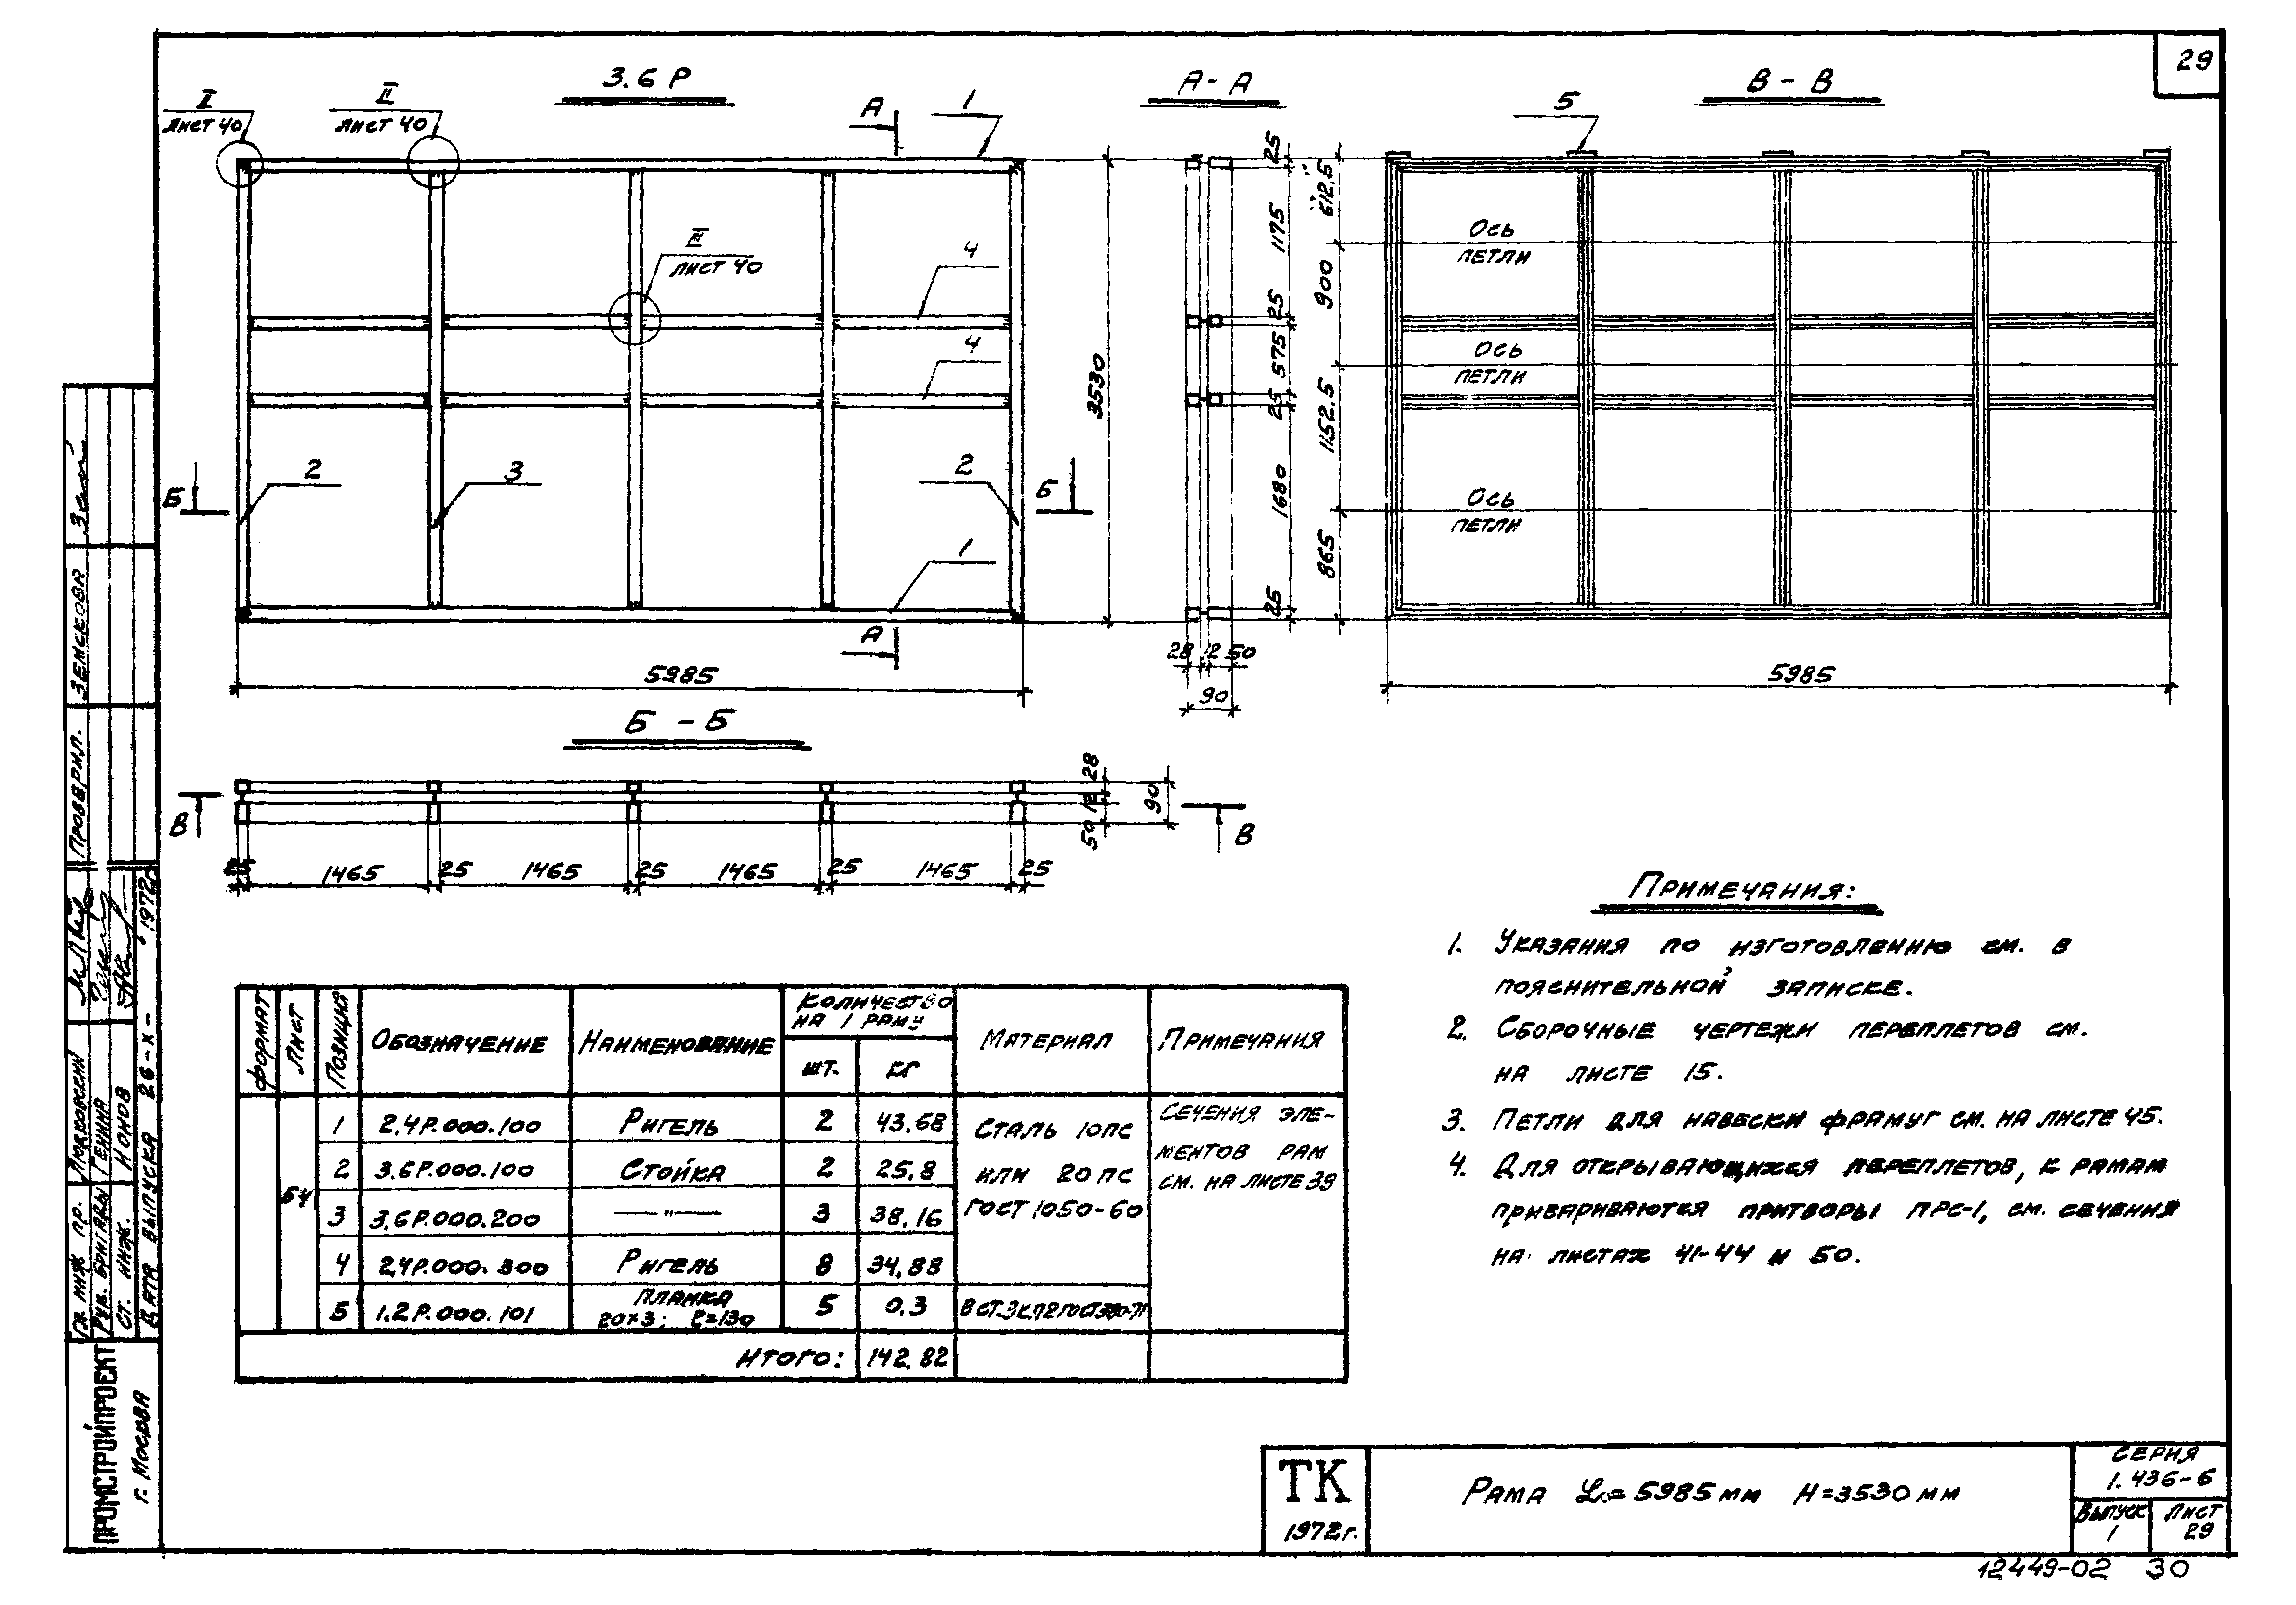 29
3.6 Р
А-А
В-В
I
лист 40
II
лист 40
А
1
5
III
лист 40
4
4
2
3
2
Б
Б
1
А
3530
5985
25
1175
25
575
25
1680
25
28 12 50
90
612.5
900
1152.5
865
Ось
петли
Ось
петли
Ось
петли
5985
Б-Б
В
В
28
12
50
90
25 1465 25 1465 25 1465 25 1465 25
Примечания:
1. Указания по изготовлению см. в
пояснительной записке.
2. Сборочные чертежи переплетов см.
на листе 15.
3. Петли для навески фрамуг см. на листе 45.
4. Для открывающихся переплетов, к рамам
привариваются притворы ПРС-1, см. сечения
на листах 41-44 и 50.
Формат Лист Позиция Обозначение Наименование Количество на 1 раму Материал Примечания
шт. кг
Бч
1 2,4Р.000.100 Ригель 2 43,68
2 3.6Р.000.100 Стойка 2 25,8
3 3.6Р.000.200 —"— 3 38,16
4 2,4Р.000.300 Ригель 8 34,88
5 1.2Р.000.101 Планка 20×3; ℓ=130 5 0,3
Сталь 10пс
или 20 пс
ГОСТ 1050-60
В Ст.3кп2 ГОСТ 380-71
Сечения эле-
ментов рам
см. на листе 39
Итого: 142,82
ТК
1972г.
Рама L=5985 мм Н=3530 мм
Серия
1.436-6
Выпуск
1
Лист
29
12449-02 30
Проверил. Земскова
Гл. инж. пр.
Рук. бригады Генина
Ст. инж. Нонов
Дата выпуска 26-X- 1972г.
ПРОМСТРОЙПРОЕКТ
г. Москва